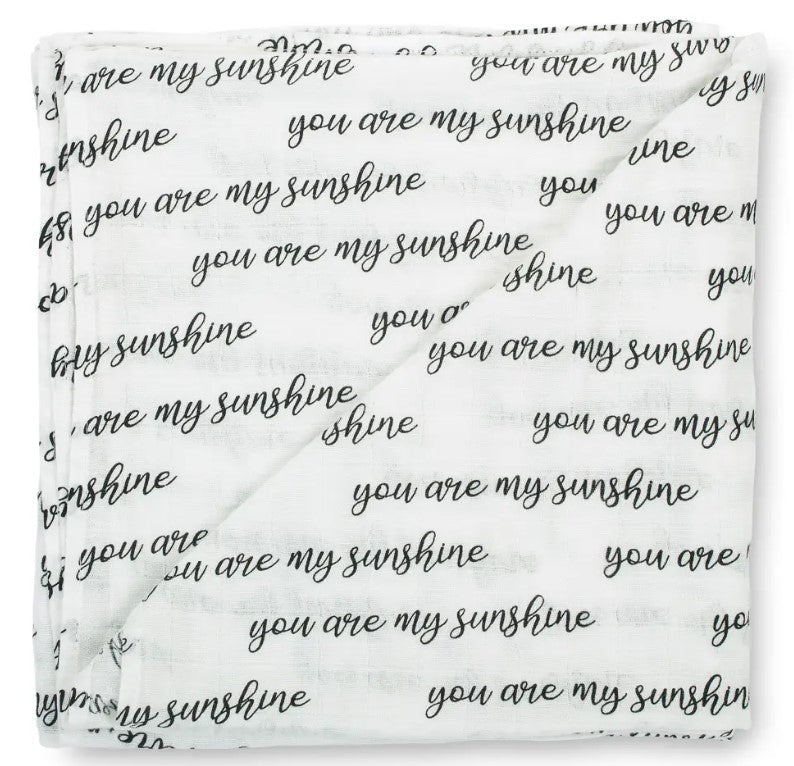 are my sunshine you are my sun
you are my sunshine
nshine
you are my sunshine you
you are m
you are my sunshine
shine you
you a
my sunshine
you are my sunshine
are my sunshine
shine you are my su
nshine
you are my sunshine
you are
ou are my sunshine you are
you are my sunshine yo
you are my sunshin
my sunshine